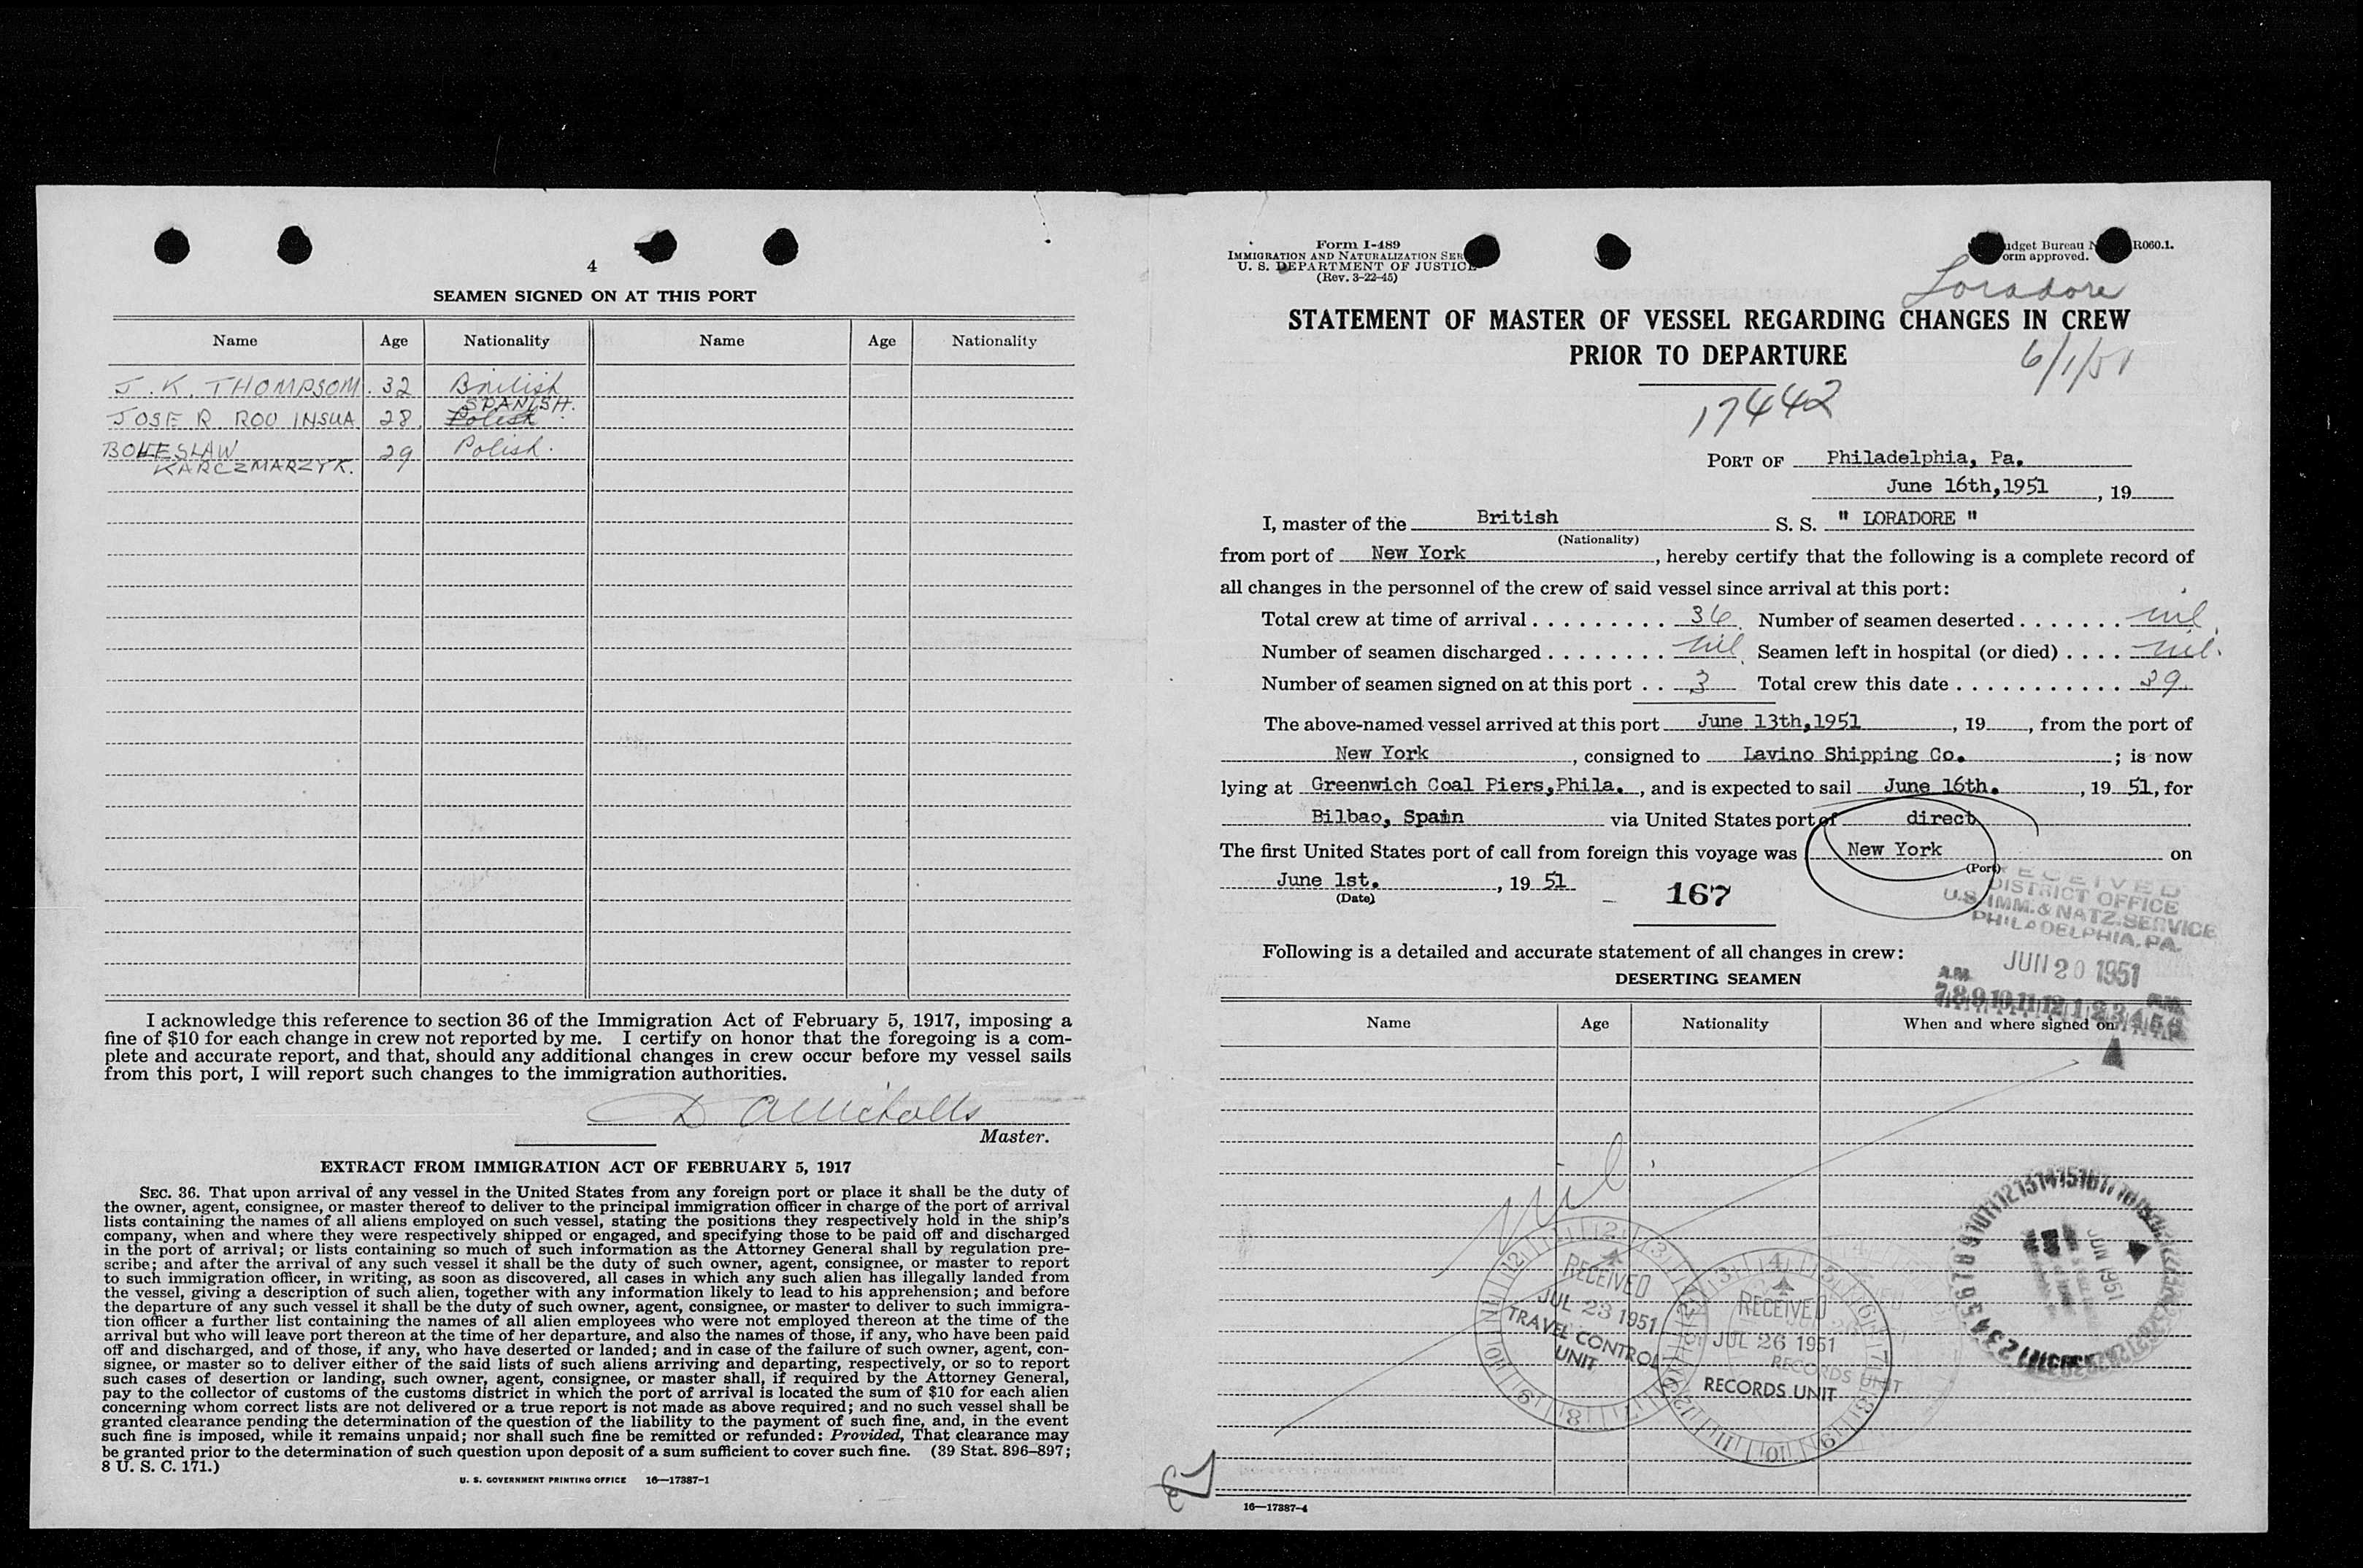 4
SEAMEN SIGNED ON AT THIS PORT
Name Age Nationality Name Age Nationality
J. K. THOMPSOM. 32 British
SPANISH.
JOSE R. ROU INSUA 28. Polish
BOLESLAW 29 Polish.
KARCZMARZYK.
I acknowledge this reference to section 36 of the Immigration Act of February 5, 1917, imposing a
fine of $10 for each change in crew not reported by me. I certify on honor that the foregoing is a com-
plete and accurate report, and that, should any additional changes in crew occur before my vessel sails
from this port, I will report such changes to the immigration authorities.
Master.
EXTRACT FROM IMMIGRATION ACT OF FEBRUARY 5, 1917
SEC. 36. That upon arrival of any vessel in the United States from any foreign port or place it shall be the duty of
the owner, agent, consignee, or master thereof to deliver to the principal immigration officer in charge of the port of arrival
lists containing the names of all aliens employed on such vessel, stating the positions they respectively hold in the ship's
company, when and where they were respectively shipped or engaged, and specifying those to be paid off and discharged
in the port of arrival; or lists containing so much of such information as the Attorney General shall by regulation pre-
scribe; and after the arrival of any such vessel it shall be the duty of such owner, agent, consignee, or master to report
to such immigration officer, in writing, as soon as discovered, all cases in which any such alien has illegally landed from
the vessel, giving a description of such alien, together with any information likely to lead to his apprehension; and before
the departure of any such vessel it shall be the duty of such owner, agent, consignee, or master to deliver to such immigra-
tion officer a further list containing the names of all alien employees who were not employed thereon at the time of the
arrival but who will leave port thereon at the time of her departure, and also the names of those, if any, who have been paid
off and discharged, and of those, if any, who have deserted or landed; and in case of the failure of such owner, agent, con-
signee, or master so to deliver either of the said lists of such aliens arriving and departing, respectively, or so to report
such cases of desertion or landing, such owner, agent, consignee, or master shall, if required by the Attorney General,
pay to the collector of customs of the customs district in which the port of arrival is located the sum of $10 for each alien
concerning whom correct lists are not delivered or a true report is not made as above required; and no such vessel shall be
granted clearance pending the determination of the question of the liability to the payment of such fine, and, in the event
such fine is imposed, while it remains unpaid; nor shall such fine be remitted or refunded: Provided, That clearance may
be granted prior to the determination of such question upon deposit of a sum sufficient to cover such fine. (39 Stat. 896–897;
8 U. S. C. 171.)
U. S. GOVERNMENT PRINTING OFFICE 16—17387-1
Form I-489
IMMIGRATION AND NATURALIZATION SER
U. S. DEPARTMENT OF JUSTICE
(Rev. 3-22-45)
udget Bureau N R060.1.
orm approved.
Loradore
STATEMENT OF MASTER OF VESSEL REGARDING CHANGES IN CREW
PRIOR TO DEPARTURE
6/1/51
17442
PORT OF Philadelphia, Pa.
June 16th,1951, 19
I, master of the British S. S. " LORADORE "
(Nationality)
from port of New York, hereby certify that the following is a complete record of
all changes in the personnel of the crew of said vessel since arrival at this port:
Total crew at time of arrival . . . . . . . . . 36. Number of seamen deserted . . . . . . . nil.
Number of seamen discharged . . . . . . . . nil. Seamen left in hospital (or died) . . . . nil.
Number of seamen signed on at this port . . 3 Total crew this date . . . . . . . . . . . . 39
The above-named vessel arrived at this port June 13th,1951, 19, from the port of
New York, consigned to Lavino Shipping Co.; is now
lying at Greenwich Coal Piers,Phila., and is expected to sail June 16th., 19 51, for
Bilbao, Spain via United States port of direct
The first United States port of call from foreign this voyage was New York on
(Port)
June 1st., 19 51
(Date)
167
RECEIVED
DISTRICT OFFICE
U.S. IMM. & NATZ. SERVICE
PHILADELPHIA, PA.
JUN 20 1951
A.M. P.M.
7,8,9,10,11,12,1,2,3,4,5,6
Following is a detailed and accurate statement of all changes in crew:
DESERTING SEAMEN
Name Age Nationality When and where signed on
Nil
RECEIVED
JUL 23 1951
TRAVEL CONTROL
UNIT
RECEIVED
JUL 26 1951
RECORDS UNIT
JUN 1951
16—17387-4